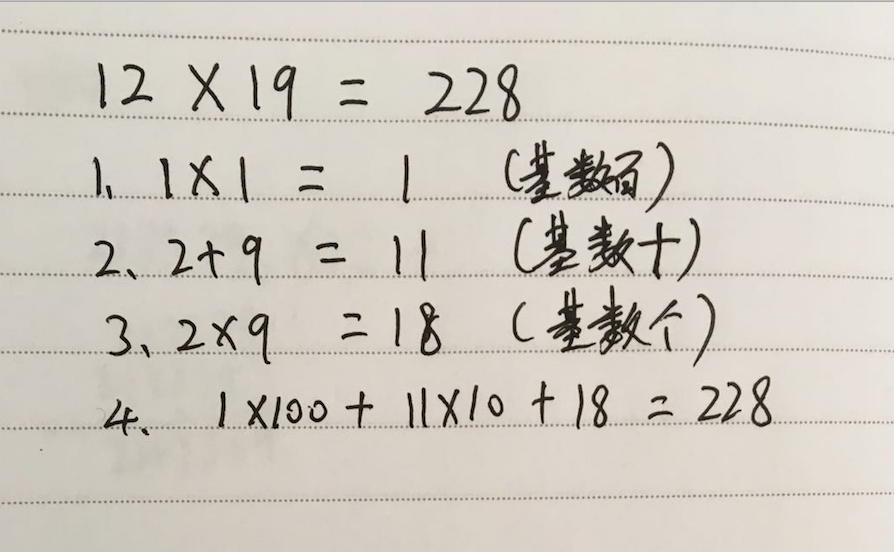 12 × 19 = 228
1、1×1 = 1 (基数百)
2、2+9 = 11 (基数十)
3、2×9 =18 (基数个)
4、1×100 + 11×10 + 18 = 228